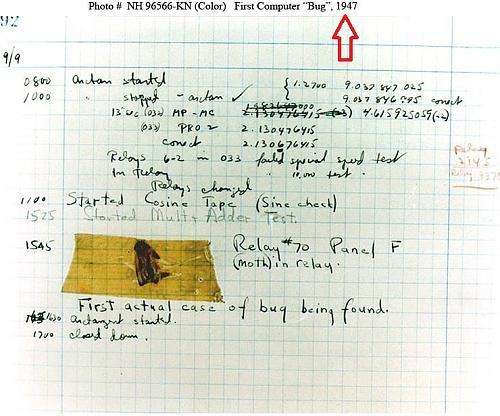 Photo # NH 96566-KN (Color) First Computer "Bug", 1947
92
9/9
0800 Antan started
1000 " stopped - antan ✓ { 1.2700 9.037 847 025
9.037 846 995 conect
13"uc (032) MP - MC 2.130476415 (-3) 4.615925059(-2)
(033) PRO 2 2.130476415
conect 2.130676415
Relays 6-2 in 033 failed special speed test
In Relay " 10,000 test .
Relays changed
1100 Started Cosine Tape (Sine check)
1525 Started Mult + Adder Test.
1545 Relay #70 Panel F
(moth) in relay.
First actual case of bug being found.
1630 antangent started.
1700 closed down .
Relay